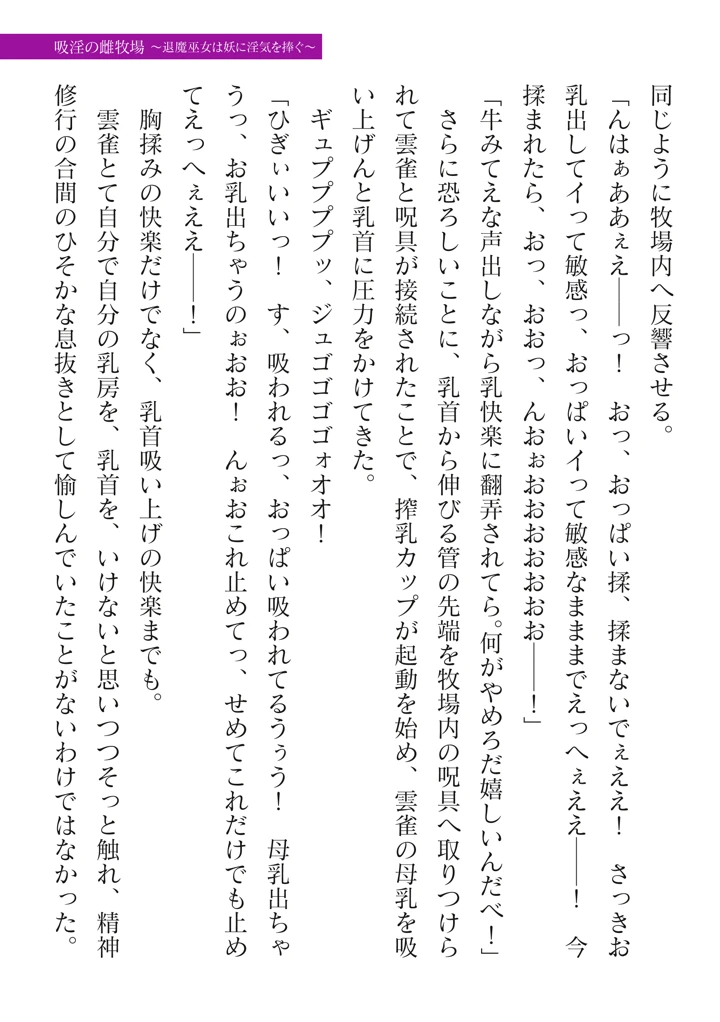 吸淫の雌牧場 ～退魔巫女は妖に淫気を捧ぐ～
同じように牧場内へ反響させる。
「んはぁああぇえ――っ！　おっ、おっぱい揉、揉まないでぇええ！　さっきお
乳出してイって敏感っ、おっぱいイって敏感なまままでえっへぇええ――！　今
揉まれたら、おっ、おおっ、んおぉおおおおおおお――！」
「牛みてえな声出しながら乳快楽に翻弄されてら。何がやめろだ嬉しいんだべ！」
さらに恐ろしいことに、乳首から伸びる管の先端を牧場内の呪具へ取りつけら
れて雲雀と呪具が接続されたことで、搾乳カップが起動を始め、雲雀の母乳を吸
い上げんと乳首に圧力をかけてきた。
ギュププププッ、ジュゴゴゴゴォオオ！
「ひぎぃいいっ！　す、吸われるっ、おっぱい吸われてるうぅう！　母乳出ちゃ
うっ、お乳出ちゃうのぉおお！　んぉおこれ止めてっ、せめてこれだけでも止め
てえっへぇええ――！」
胸揉みの快楽だけでなく、乳首吸い上げの快楽までも。
雲雀とて自分で自分の乳房を、乳首を、いけないと思いつつそっと触れ、精神
修行の合間のひそかな息抜きとして愉しんでいたことがないわけではなかった。